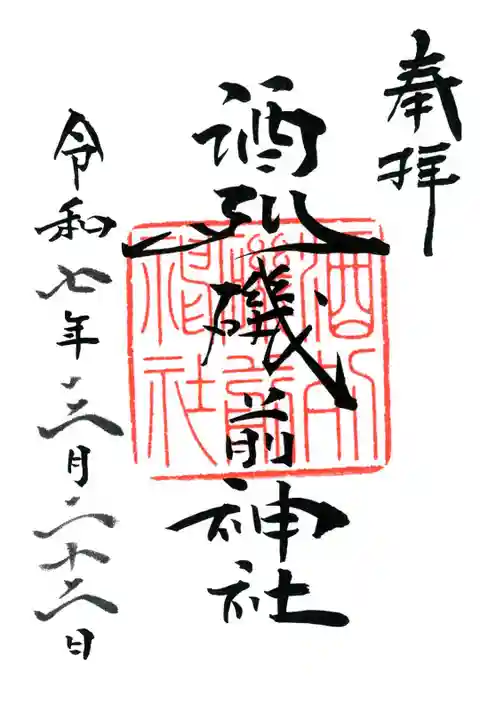 奉拝
酒列磯前神社
令和七年三月二十六日
酒列
磯前
神社